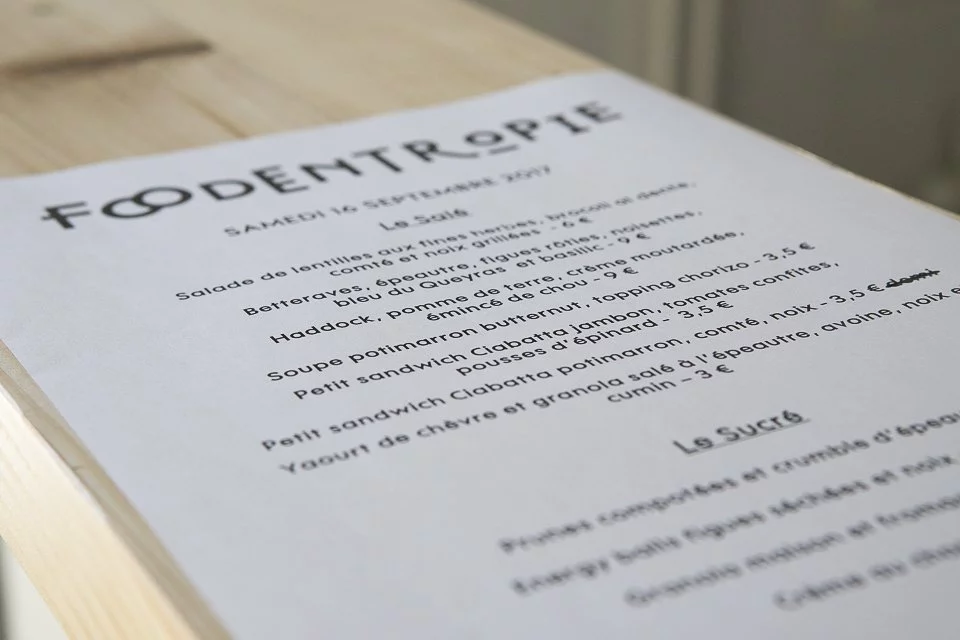 FOODENTROPIE
SAMEDI 16 SEPTEMBRE 2017
Le Salé
Salade de lentilles aux fines herbes, brocoli al dente,
comté et noix grillées - 6 €
Betteraves, épeautre, figues rôties, noisettes,
bleu du Queyras et basilic - 9 €
Haddock, pomme de terre, crème moutardée,
émincé de chou - 9 €
Soupe potimarron butternut, topping chorizo - 3,5 €
Petit sandwich Ciabatta jambon, tomates confites,
pousses d'épinard - 3,5 €
Petit sandwich Ciabatta potimarron, comté, noix - 3,5 €
Yaourt de chèvre et granola salé à l'épeautre, avoine, noix e
cumin - 3 €
Le Sucré
Prunes compotées et crumble d'épeau
Energy balls figues séchées et noix
Granola maison et fromag
Crème au cho